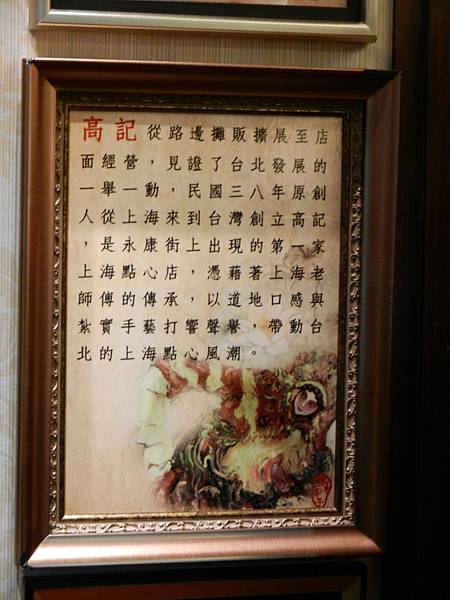 高記從路邊攤販擴展至店
面經營，見證了台北發展的
一舉一動，民國三八年原創
人，從上海來到台灣創立高記
，是永康街上出現的第一家
上海點心店，憑藉著上海老
師傅的傳承，以道地口感與
紮實手藝打響聲譽，帶動台
北的上海點心風潮。